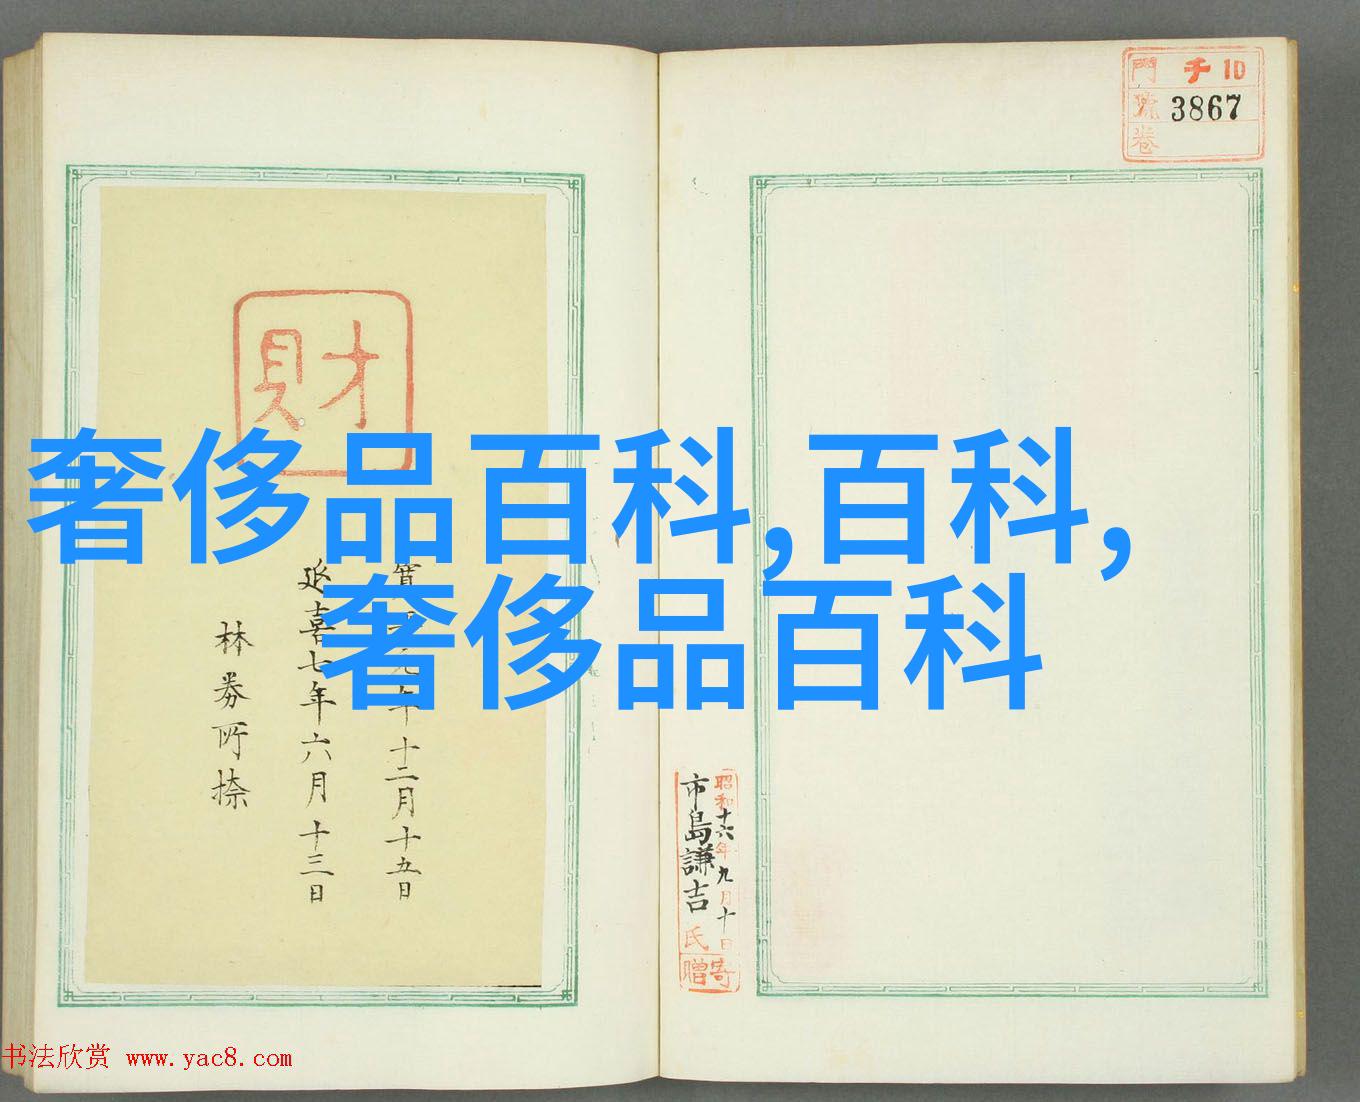 門 チ 10
號 3867
卷
奢侈品百科,百科,
奢侈品百科
昭和十六年九月十日
市島謙吉氏
寄贈
財
年十二月十五日
延喜七年六月十三日
林券所捺
书法欣赏 www.yac8.com